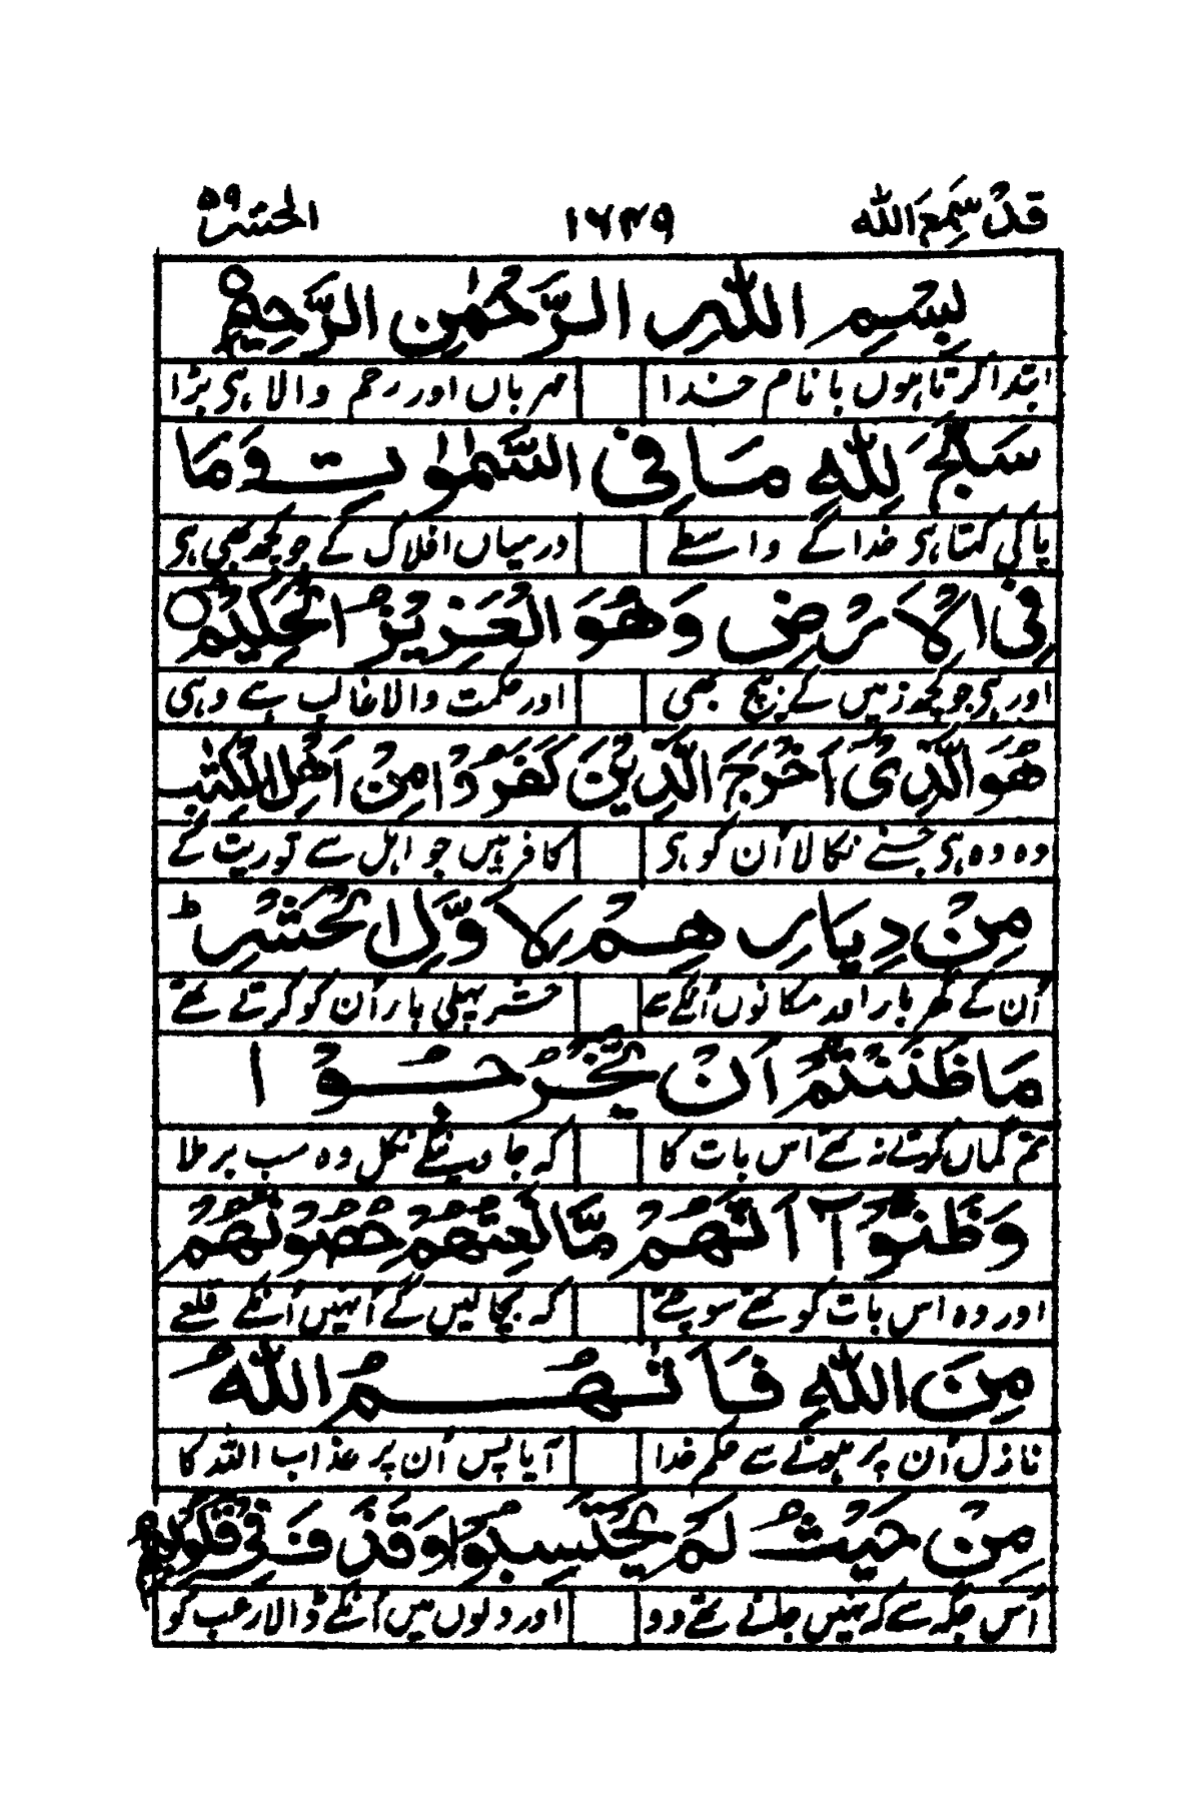 قَدْ سَمِعَ اللّٰه ١٦٤٩ الحشر ٥٩
بِسْمِ اللّٰهِ الرَّحْمٰنِ الرَّحِيْمِ
ابتدا کرتا ہوں با نام خدا مہرباں اور رحم والا ہی بڑا
سَبَّحَ لِلّٰهِ مَا فِى السَّمٰوٰتِ وَمَا
پاکی کہتا ہی خدا کے واسطے درمیاں افلاک کے جو کچھ بھی ہی
فِى الْاَرْضِ وَهُوَ الْعَزِيْزُ الْحَكِيْمُ
اور ہی جو کچھ زمیں کے بیچ بھی اور حکمت والا غالب ہے وہی
هُوَ الَّذِىْ اَخْرَجَ الَّذِيْنَ كَفَرُوْا مِنْ اَهْلِ الْكِتٰبِ
وہ وہ ہی جسنے نکالا اُن کو ہی کافر ہیں جو اہل سے توریت کے
مِنْ دِيَارِهِمْ لِاَوَّلِ الْحَشْرِ ط
اُن کے گھر بار اور مکانوں اُنکے سے حشر پہلی بار اُن کو کرتے تھے
مَا ظَنَنْتُمْ اَنْ يَّخْرُجُوْا
تم گماں کرتے نہ تھے اس بات کا کہ جاوینگے نکل وہ سب برملا
وَظَنُّوْآ اَنَّهُمْ مَّانِعَتُهُمْ حُصُوْنُهُمْ
اور وہ اس بات کو تھے سوچتے کہ بچا لیں گے اُنہیں اُنکے قلعے
مِنَ اللّٰهِ فَاَتٰىهُمُ اللّٰهُ
نازل اُن پر ہونے سے حکم خدا آیا پس اُن پر عذاب اللہ کا
مِنْ حَيْثُ لَمْ يَحْتَسِبُوْا وَقَذَفَ فِىْ قُلُوْبِهِمُ
اُس جگہ سے کہ نہیں جانے تھے وو اور دلوں میں اُنکے ڈالا رعب کو